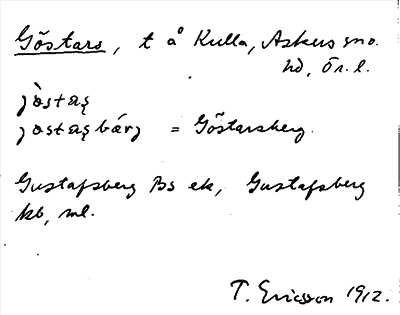 Göstars, t å Kulla, Askers sn o.
hd, Ör. l.
jòstaʂ
jostaʂbárj = Göstarsberg.
Gustafsberg Bs ek, Gustafsberg
kb, ml.
T. Ericsson 1912.